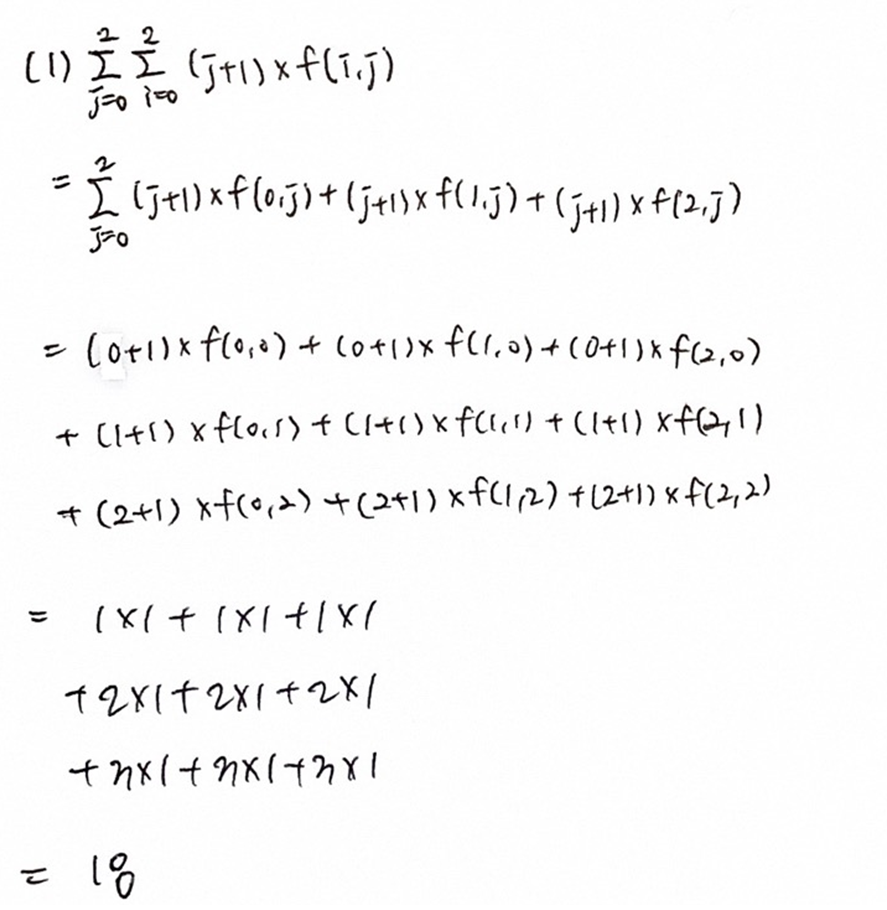 (1) \sum_{j=0}^{2} \sum_{i=0}^{2} (j+1) × f(i,j)
= \sum_{j=0}^{2} (j+1) × f(0,j) + (j+1) × f(1,j) + (j+1) × f(2,j)
= (0+1) × f(0,0) + (0+1) × f(1,0) + (0+1) × f(2,0)
+ (1+1) × f(0,1) + (1+1) × f(1,1) + (1+1) × f(2,1)
+ (2+1) × f(0,2) + (2+1) × f(1,2) + (2+1) × f(2,2)
= 1×1 + 1×1 + 1×1
+ 2×1 + 2×1 + 2×1
+ 3×1 + 3×1 + 3×1
= 18